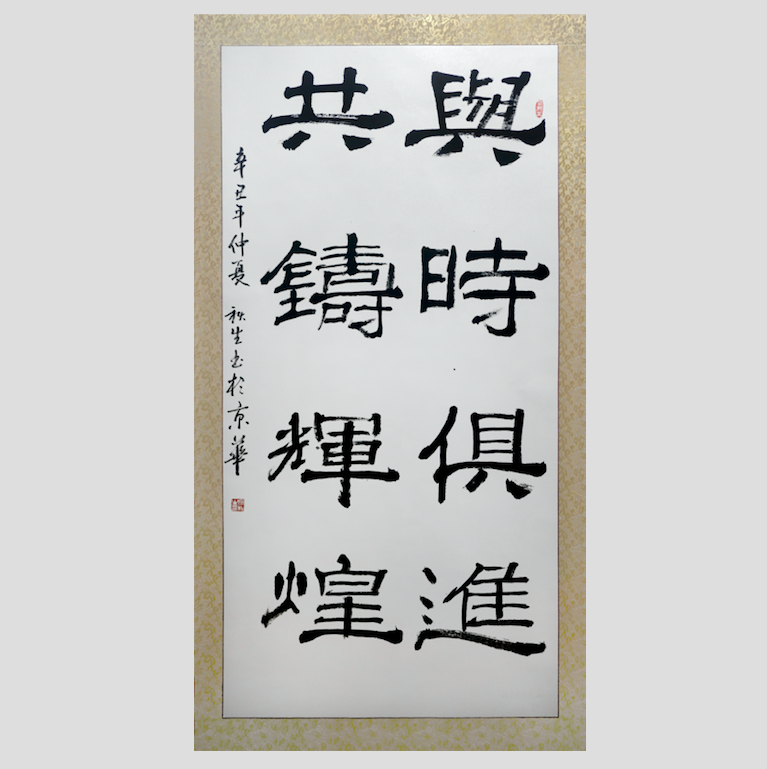 與時俱進
共鑄輝煌
辛丑年仲夏 秋生書於京華